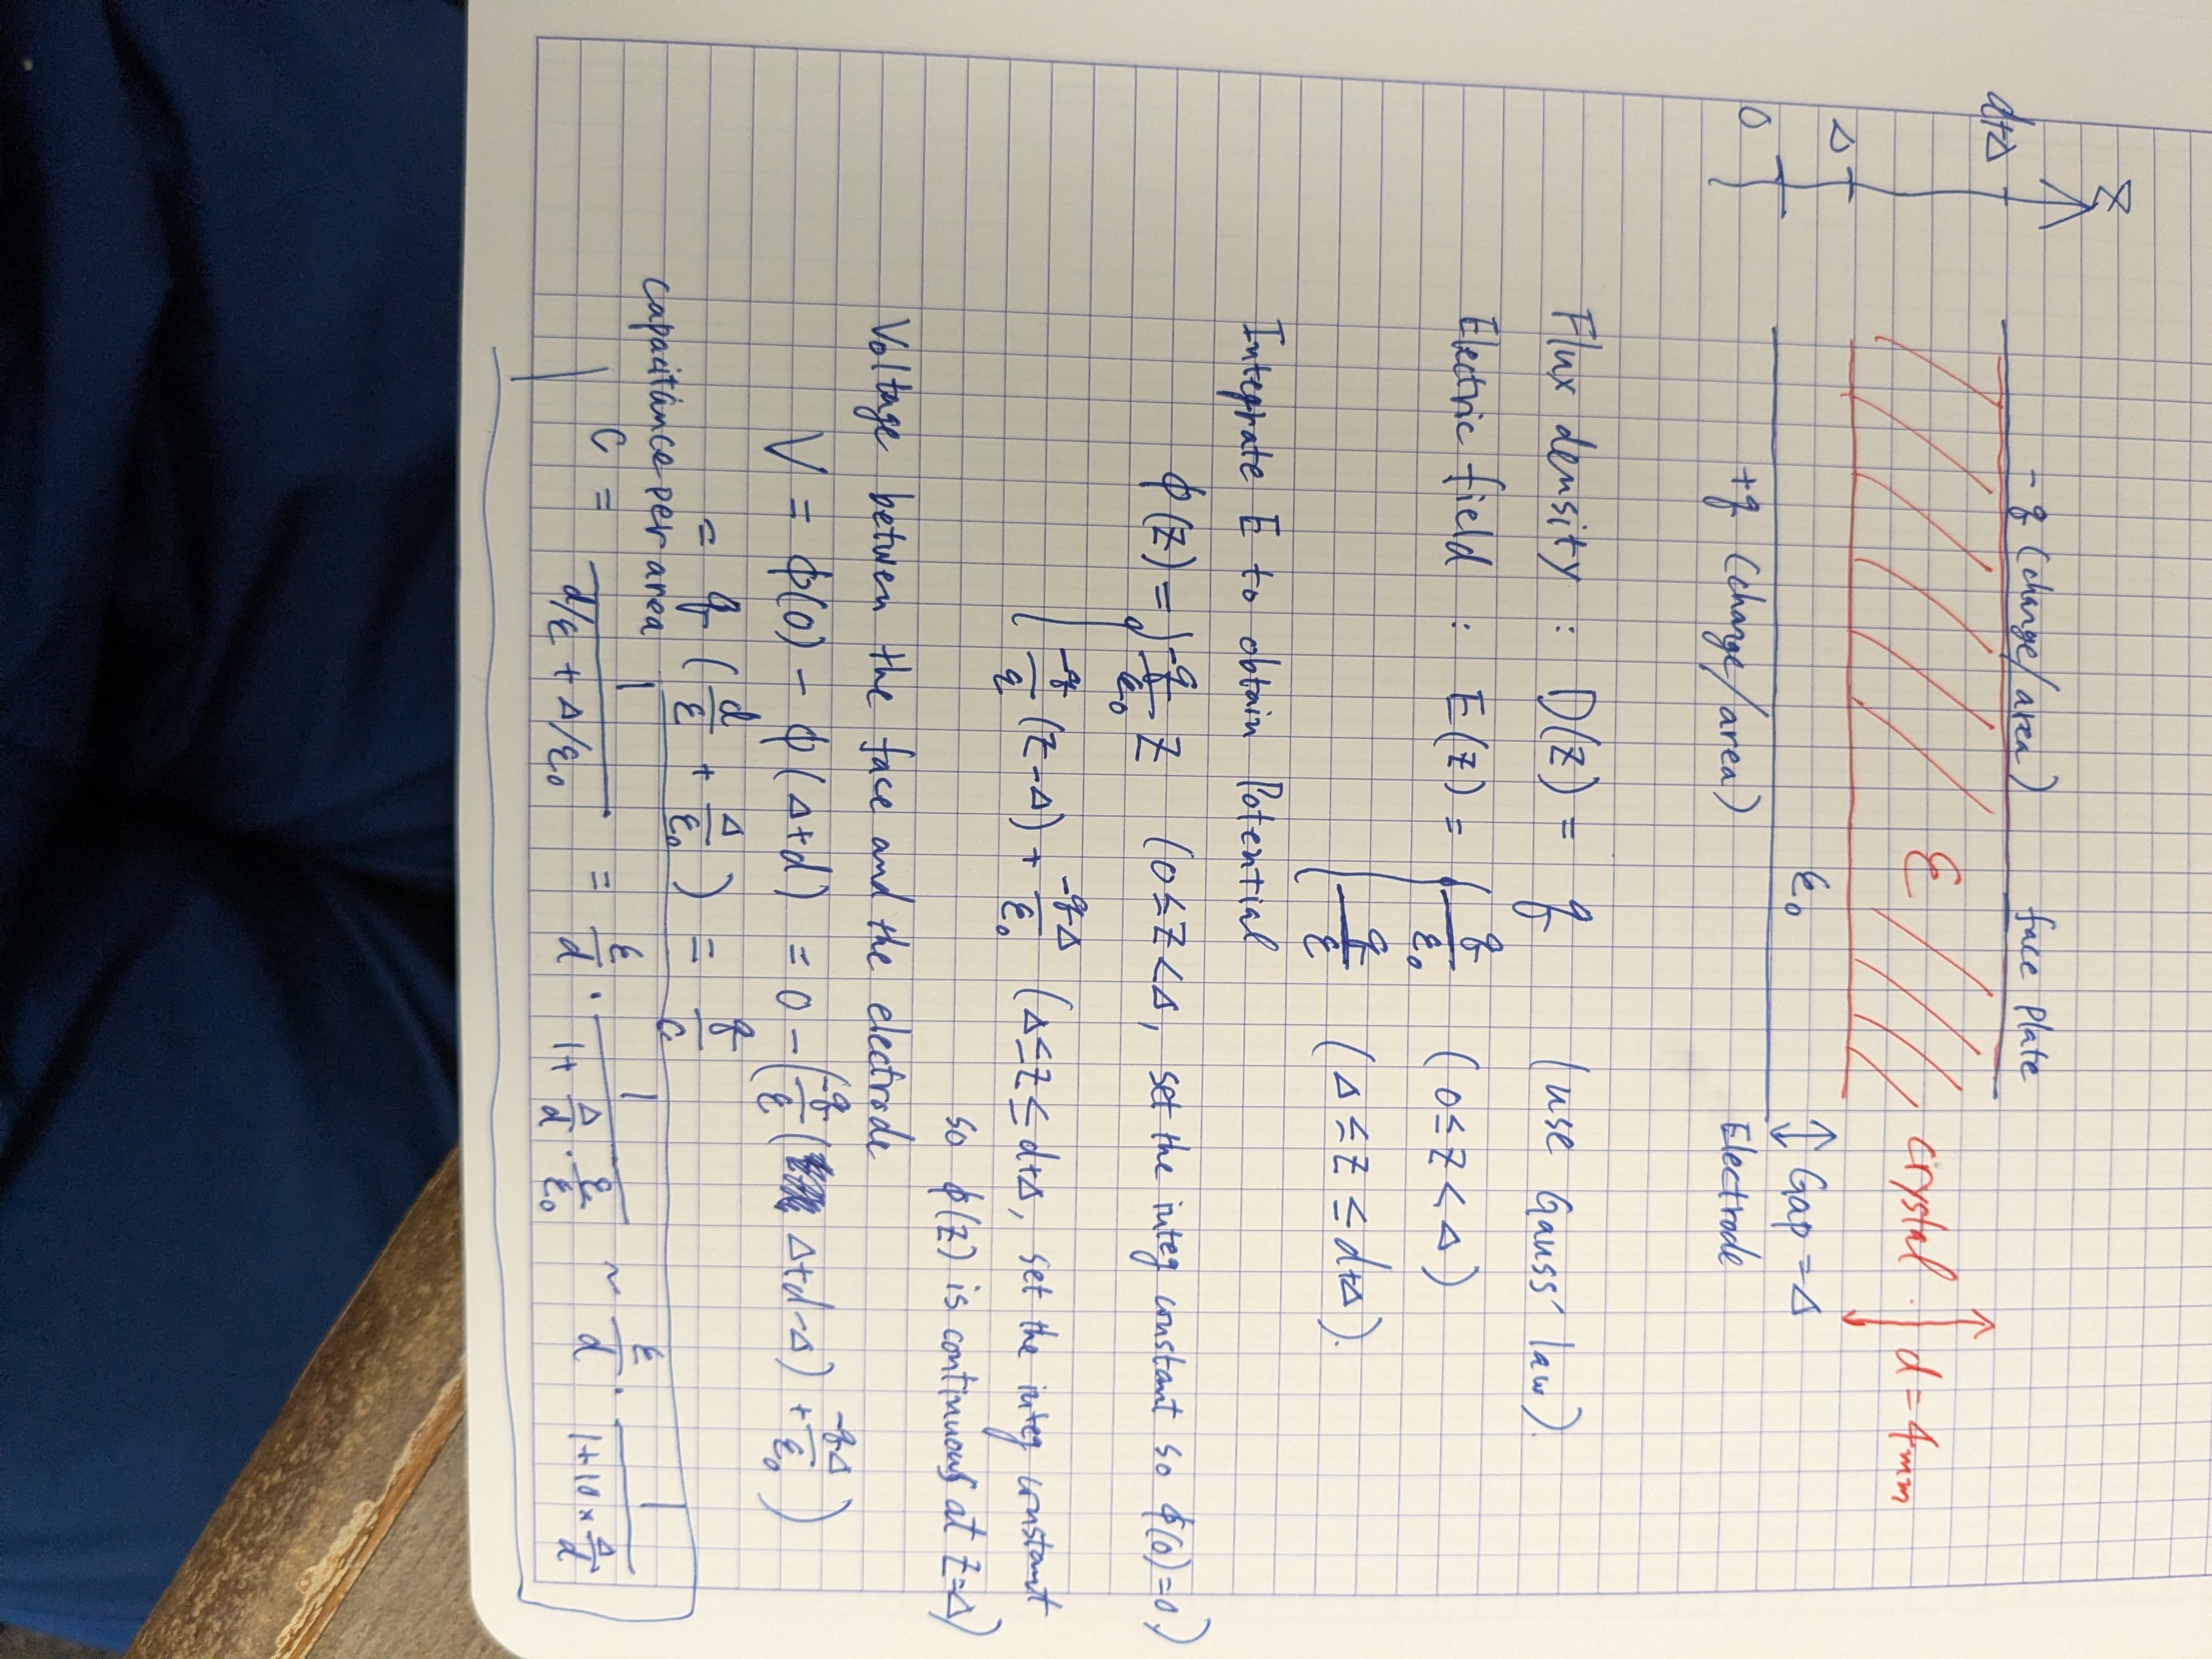 z
d+Δ
Δ
0
-q (charge/area) face plate
ε crystal d = 4mm
ε₀ Gap = Δ
+q (charge/area) Electrode
Flux density : D(z) = q (use Gauss' law).
Electric field : E(z) = { q/ε₀ (0 ≤ z < Δ)
q/ε (Δ ≤ z ≤ d+Δ).
Integrate E to obtain Potential
φ(z) = { -q/ε₀ z (0 ≤ z < Δ, set the integ constant so φ(0)=0,)
-q/ε (z-Δ) + -qΔ/ε₀ (Δ ≤ z ≤ d+Δ, set the integ constant
so φ(z) is continuous at z=Δ)
Voltage between the face and the electrode
V = φ(0) - φ(Δ+d) = 0 - (-q/ε (Δ+d-Δ) + -qΔ/ε₀)
= q (d/ε + Δ/ε₀) = q/C
Capacitance per area
C = 1/(d/ε + Δ/ε₀) = ε/d · 1/(1 + Δ/d · ε/ε₀) ~ ε/d · 1/(1+10×Δ/d)